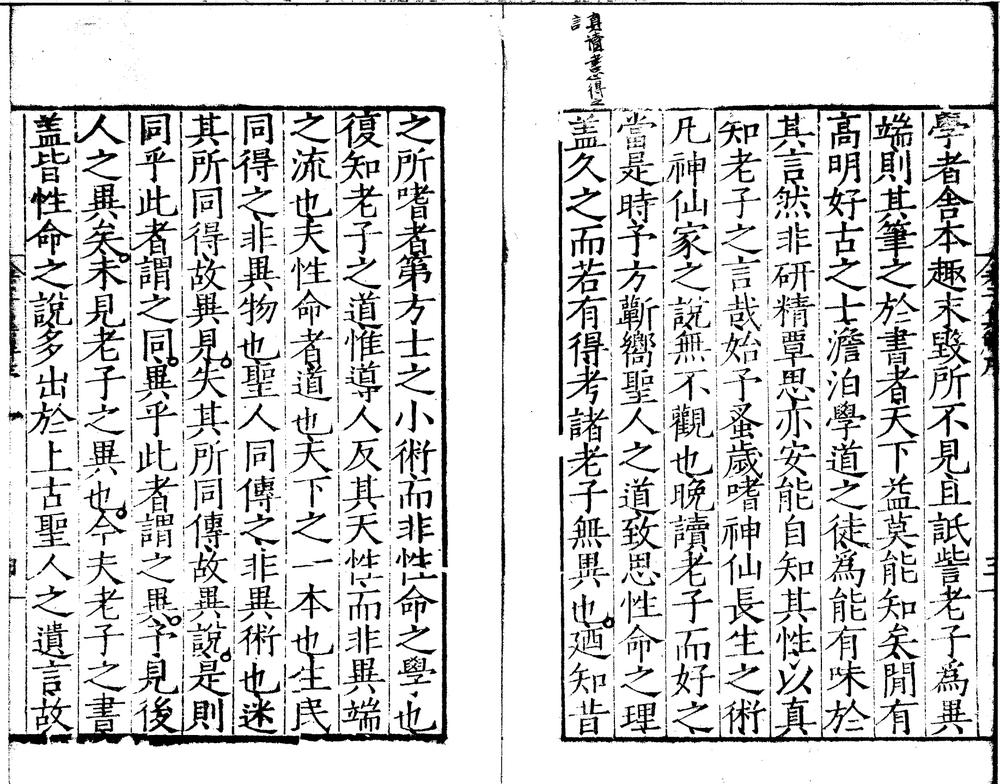 真讀書心得之
言
學者舍本趣末毀所不見且詆訾老子爲異
端則其筆之於書者天下益莫能知矣閒有
高明好古之士澹泊學道之徒爲能有味於
其言然非研精覃思亦安能自知其性以真
知老子之言哉始予蚤歲嗜神仙長生之術
凡神仙家之說無不觀也晚讀老子而好之
當是時予方蘄嚮聖人之道致思性命之理
盖久之而若有得考諸老子無異也廼知昔
之所嗜者第方士之小術而非性命之學也
復知老子之道惟導人反其天性而非異端
之流也夫性命者道也天下之一本也生民
同得之非異物也聖人同傳之非異術也迷
其所同得故異見失其所同傳故異說是則
同乎此者謂之同異乎此者謂之異予見後
人之異矣未見老子之異也今夫老子之書
盖皆性命之說多出於上古聖人之遺言故